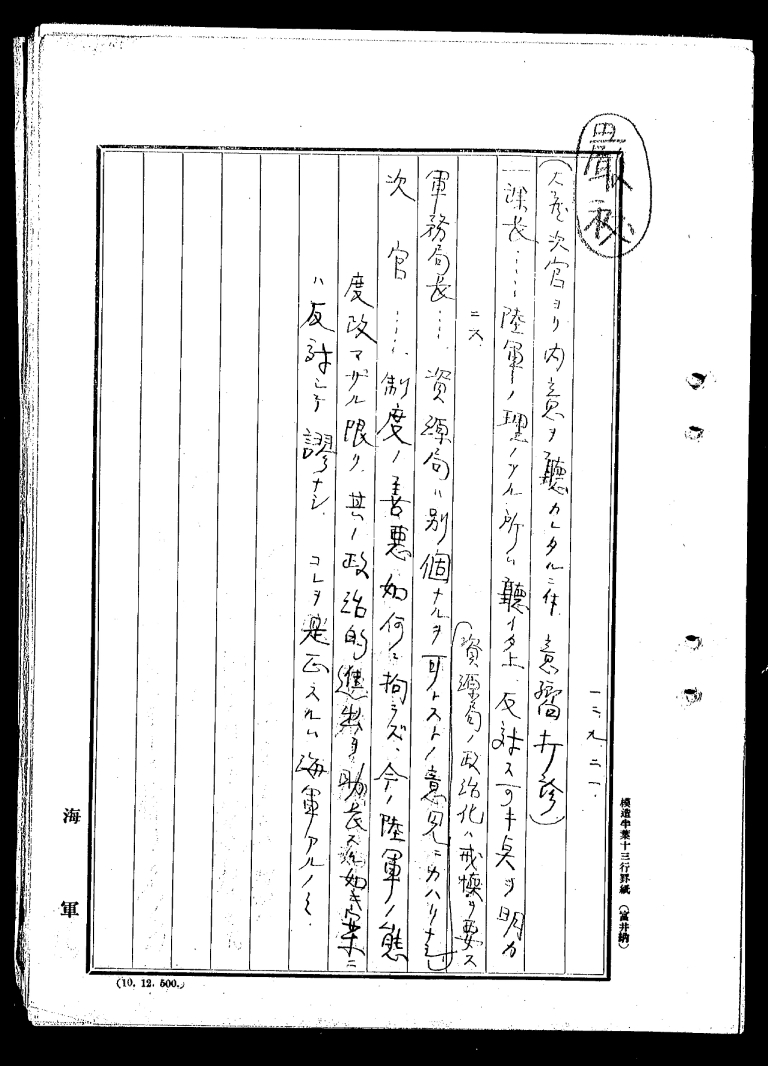 嚴秘
一二、九、二一、
(大蔵次官ヨリ内意ヲ聽カレタルニ付 意嚮打診)
一課長……陸軍ノ理ノアル所ハ聽イタ上反対スベキ点ヲ明カ
ニス、
(資源局ノ政治化ハ戒愼ヲ要ス
軍務局長…… 資源局ハ別個ナルヲ可トストノ意見ニカハリナシ)
次官……制度ノ善悪如何ニ拘ラズ、今ノ陸軍ノ態
度改マザル限リ、其ノ政治的進出ヲ助長スル如キ案ニ
ハ反対シテ謬ナシ、コレヲ是正スルハ海軍アルノミ、
海軍
模造半葉十三行罫紙 (富井納)
(10. 12. 500.)